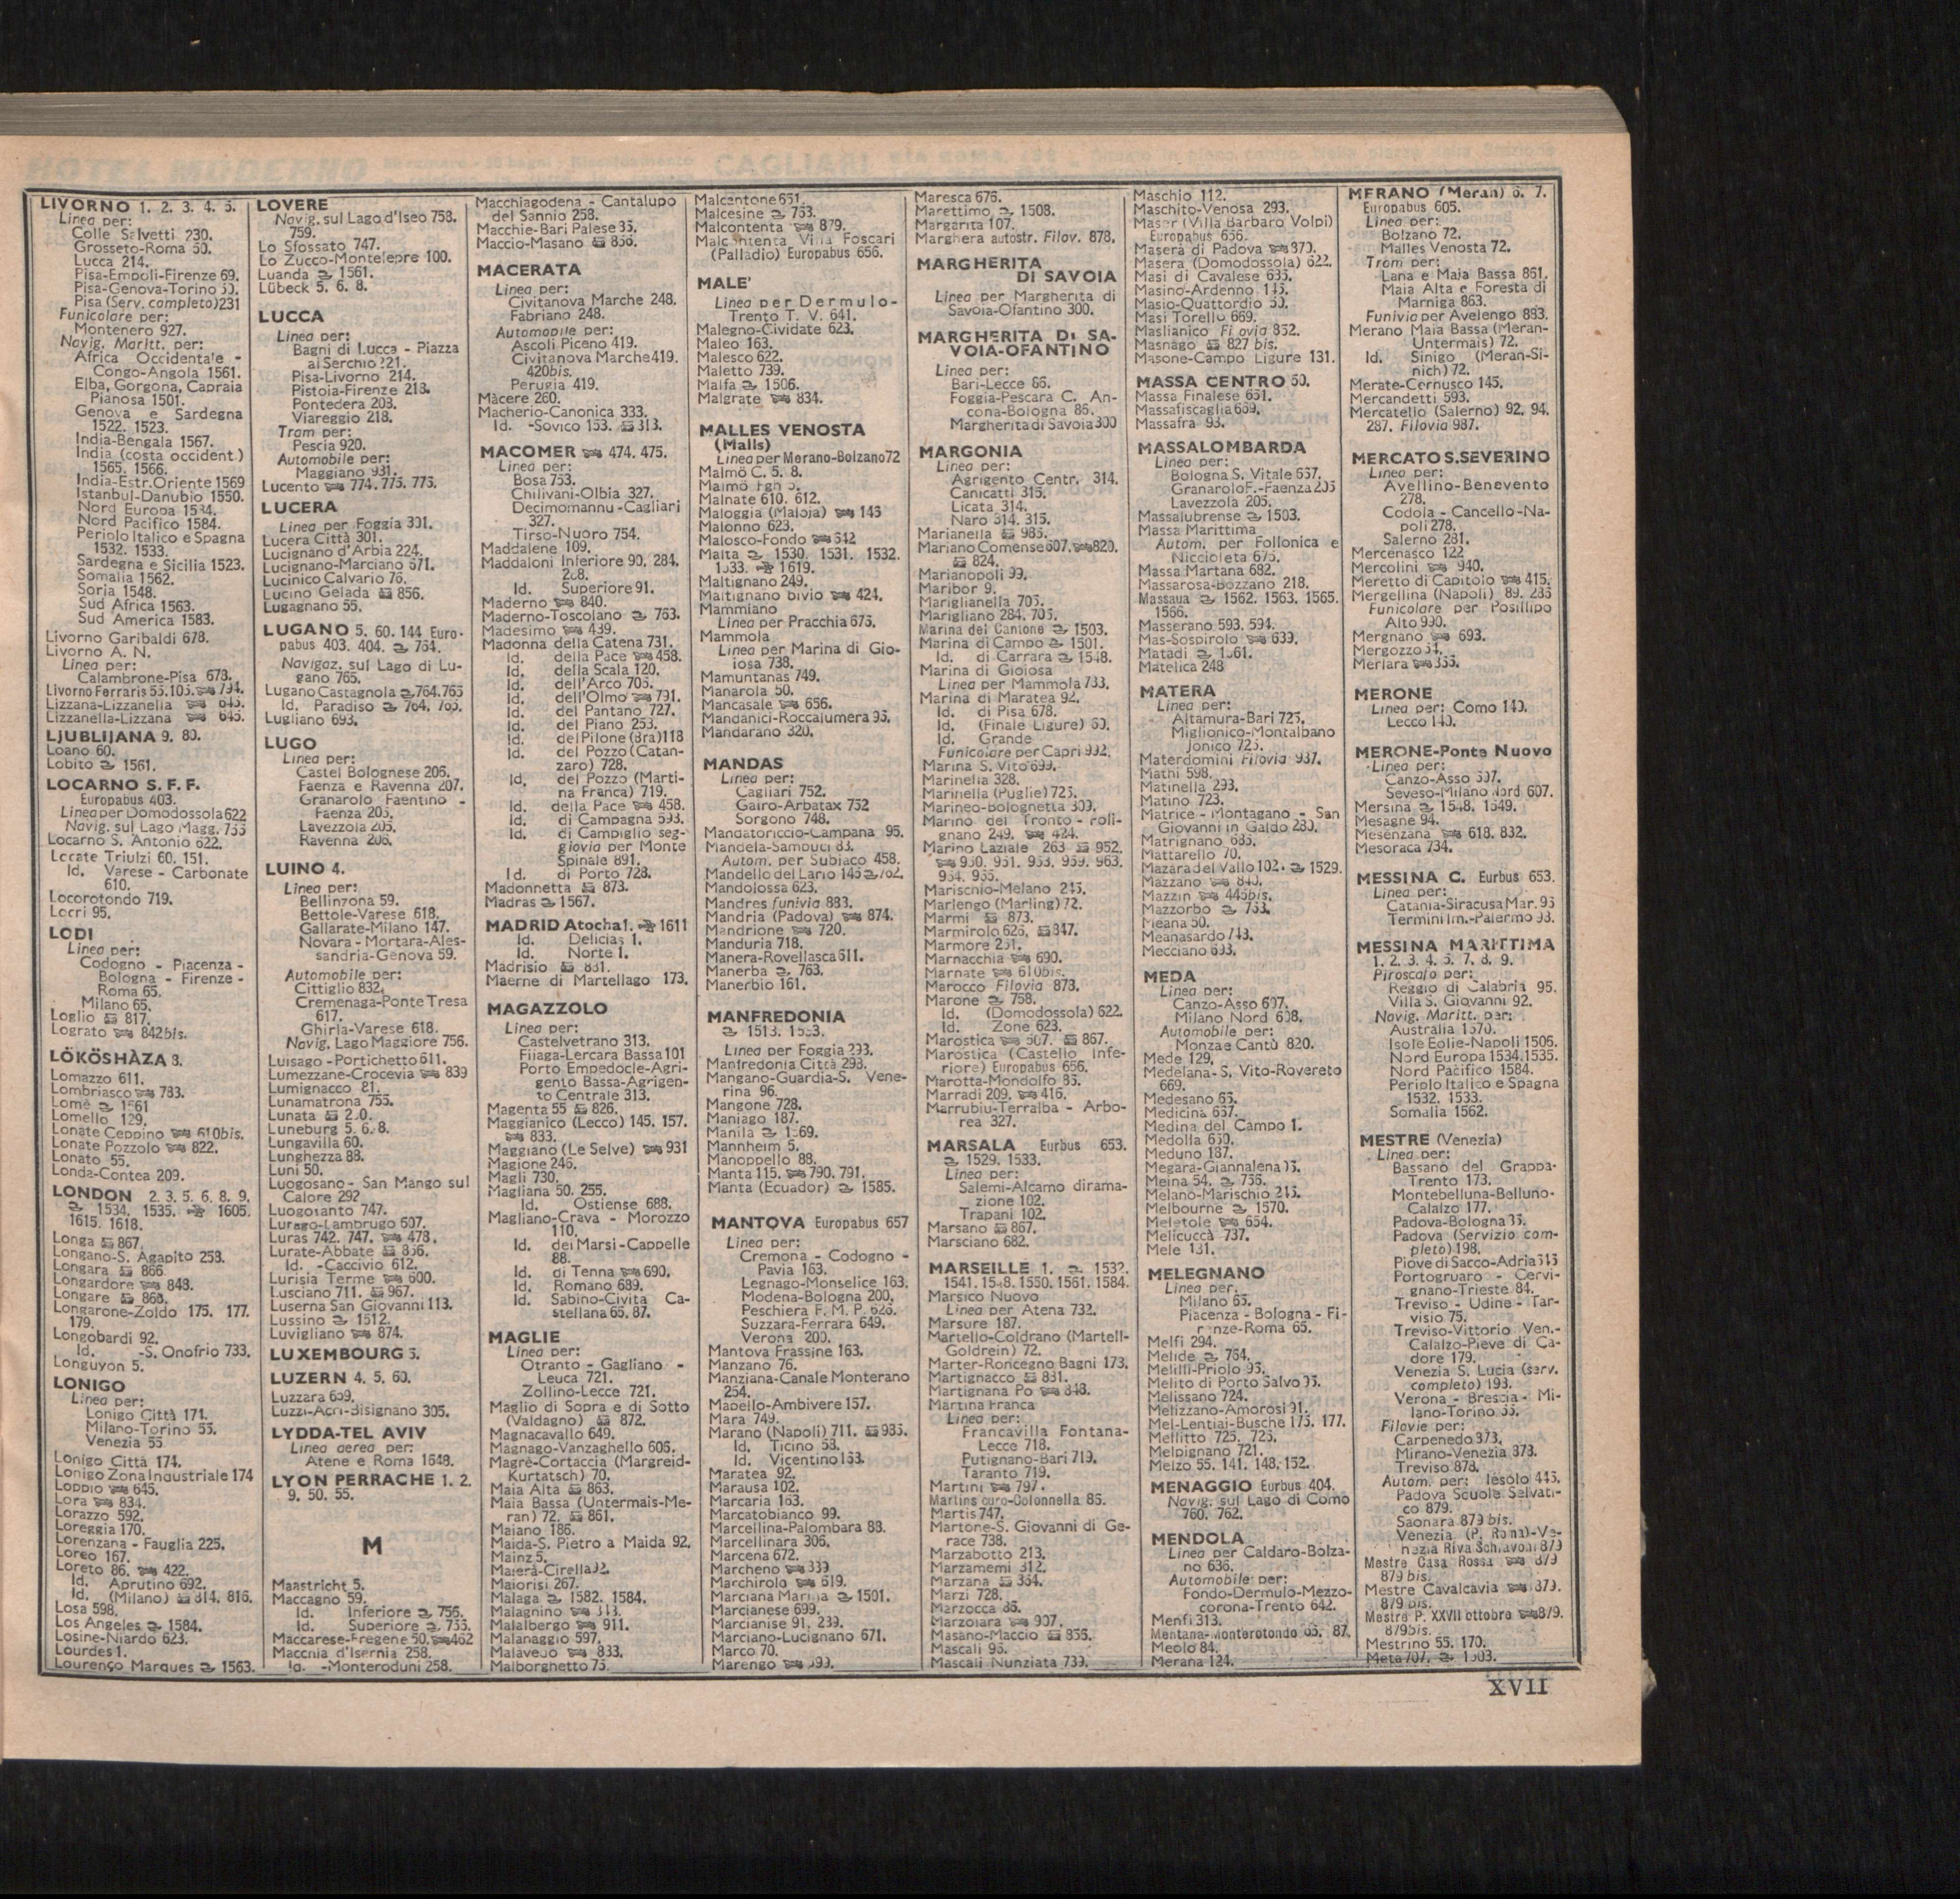 LIVORNO 1. 2. 3. 4. 5.
Linea per:
Colle Salvetti 230.
Grosseto-Roma 50.
Lucca 214.
Pisa-Empoli-Firenze 69.
Pisa-Genova-Torino 50.
Pisa (Serv. completo) 231
Funicolare per:
Montenero 927.
Navig. Maritt. per:
Africa Occidentale -
Congo-Angola 1561.
Elba, Gorgona, Capraia
Pianosa 1501.
Genova e Sardegna
1522. 1523.
India-Bengala 1567.
India (costa occident.)
1565. 1566.
India-Estr. Oriente 1569
Istanbul-Danubio 1550.
Nord Europa 1534.
Nord Pacifico 1584.
Periplo Italico e Spagna
1532. 1533.
Sardegna e Sicilia 1523.
Somalia 1562.
Soria 1548.
Sud Africa 1563.
Sud America 1583.
Livorno Garibaldi 678.
Livorno A. N.
Linea per:
Calambrone-Pisa 678.
Livorno Ferraris 55. 105. 794.
Lizzana-Lizzanella 645.
Lizzanella-Lizzana 645.
LJUBLIJANA 9. 80.
Loano 60.
Lobito 1561.
LOCARNO S. F. F.
Europabus 403.
Linea per Domodossola 622
Navig. sul Lago Magg. 755
Locarno S. Antonio 622.
Locate Triulzi 60. 151.
Id. Varese - Carbonate
610.
Locorotondo 719.
Locri 95.
LODI
Linea per:
Codogno - Piacenza -
Bologna - Firenze -
Roma 65.
Milano 65.
Loglio 817.
Lograto 842bis.
LÖKÖSHÀZA 8.
Lomazzo 611.
Lombriasco 783.
Lomè 1561
Lomello 129.
Lonate Ceppino 610bis.
Lonate Pozzolo 822.
Lonato 55.
Londa-Contea 209.
LONDON 2. 3. 5. 6. 8. 9.
1534. 1535. 1605.
1615. 1618.
Longa 867.
Longano-S. Agapito 258.
Longara 866.
Longardore 848.
Longare 868.
Longarone-Zoldo 175. 177.
179.
Longobardi 92.
Id. -S. Onofrio 733.
Longuyon 5.
LONIGO
Linea per:
Lonigo Città 174.
Milano-Torino 55.
Venezia 55
Lonigo Città 174.
Lonigo Zona Industriale 174
Loppio 645.
Lora 834.
Lorazzo 592.
Loreggia 170.
Lorenzana - Fauglia 225.
Loreo 167.
Loreto 86. 422.
Id. Aprutino 692.
Id. (Milano) 814. 816.
Losa 598.
Los Angeles 1584.
Losine-Niardo 623.
Lourdes 1.
Lourenço Marques 1563.
LOVERE
Navig. sul Lago d'Iseo 758.
759.
Lo Sfossato 747.
Lo Zucco-Montelepre 100.
Luanda 1561.
Lübeck 5. 6. 8.
LUCCA
Linea per:
Bagni di Lucca - Piazza
al Serchio 221.
Pisa-Livorno 214.
Pistoia-Firenze 218.
Pontedera 208.
Viareggio 218.
Tram per:
Pescia 920.
Automobile per:
Maggiano 931.
Lucento 774. 775. 773.
LUCERA
Linea per Foggia 301.
Lucera Città 301.
Lucignano d'Arbia 224.
Lucignano-Marciano 671.
Lucinico Calvario 76.
Lucino Gelada 856.
Lugagnano 55.
LUGANO 5. 60. 144 Euro-
pabus 403. 404. 764.
Navigaz. sul Lago di Lu-
gano 765.
Lugano Castagnola 764. 765
Id. Paradiso 764. 765.
Lugliano 693.
LUGO
Linea per:
Castel Bolognese 206.
Faenza e Ravenna 207.
Granarolo Faentino -
Faenza 205.
Lavezzola 205.
Ravenna 206.
LUINO 4.
Linea per:
Bellinzona 59.
Bettole-Varese 618.
Gallarate-Milano 147.
Novara - Mortara-Ales-
sandria-Genova 59.
Automobile per:
Cittiglio 832.
Cremenaga-Ponte Tresa
617.
Ghirla-Varese 618.
Navig. Lago Maggiore 756.
Luisago-Portichetto 611.
Lumezzane-Crocevia 839
Lumignacco 81.
Lunamatrona 755.
Lunata 2.0.
Luneburg 5. 6. 8.
Lungavilla 60.
Lunghezza 88.
Luni 50.
Luogosano - San Mango sul
Calore 292
Luogosanto 747.
Lurago-Lambrugo 607.
Luras 742. 747. 478.
Lurate-Abbate 856.
Id. -Caccivio 612.
Lurisia Terme 600.
Lusciano 711. 967.
Luserna San Giovanni 113.
Lussino 1512.
Luvigliano 874.
LUXEMBOURG 5.
LUZERN 4. 5. 60.
Luzzara 659.
Luzzi-Acri-Bisignano 305.
LYDDA-TEL AVIV
Linea aerea per:
Atene e Roma 1648.
LYON PERRACHE 1. 2.
9. 50. 55.
M
Maastricht 5.
Maccagno 59.
Id. Inferiore 756.
Id. Superiore 755.
Maccarese-Fregene 50. 462
Macchia d'Isernia 258.
Id. -Monteroduni 258.
Macchiagodena - Cantalupo
del Sannio 258.
Macchie-Bari Palese 35.
Maccio-Masano 856.
MACERATA
Linea per:
Civitanova Marche 248.
Fabriano 248.
Automobile per:
Ascoli Piceno 419.
Civitanova Marche 419.
420bis.
Perugia 419.
Màcere 260.
Macherio-Canonica 333.
Id. -Sovico 153. 313.
MACOMER 474. 475.
Linea per:
Bosa 753.
Chilivani-Olbia 327.
Decimomannu-Cagliari
327.
Tirso-Nuoro 754.
Maddalene 109.
Maddaloni Inferiore 90. 284.
288.
Id. Superiore 91.
Maderno 840.
Maderno-Toscolano 763.
Madesimo 439.
Madonna della Catena 731.
Id. della Pace 458.
Id. della Scala 120.
Id. dell'Arco 705.
Id. dell'Olmo 791.
Id. del Pantano 727.
Id. del Piano 253.
Id. del Pilone (Bra) 118
Id. del Pozzo (Catan-
zaro) 728.
Id. del Pozzo (Marti-
na Franca) 719.
Id. della Pace 458.
Id. di Campagna 593.
Id. di Campiglio seg-
giovia per Monte
Spinale 891.
Id. di Porto 728.
Madonnetta 873.
Madras 1567.
MADRID Atocha 1. 1611
Id. Delicias 1.
Id. Norte 1.
Madrisio 831.
Maerne di Martellago 173.
MAGAZZOLO
Linea per:
Castelvetrano 313.
Filaga-Lercara Bassa 101
Porto Empedocle-Agri-
gento Bassa-Agrigen-
to Centrale 313.
Magenta 55 826.
Maggianico (Lecco) 145. 157.
833.
Maggiano (Le Selve) 931
Magione 246.
Magli 730.
Magliana 50. 255.
Id. Ostiense 688.
Magliano-Crava - Morozzo
110.
Id. dei Marsi-Cappelle
88.
Id. di Tenna 690.
Id. Romano 689.
Id. Sabino-Civita Ca-
stellana 65. 87.
MAGLIE
Linea per:
Otranto - Gagliano -
Leuca 721.
Zollino-Lecce 721.
Maglio di Sopra e di Sotto
(Valdagno) 872.
Magnacavallo 649.
Magnago-Vanzaghello 606.
Magré-Cortaccia (Margreid-
Kurtatsch) 70.
Maia Alta 863.
Maia Bassa (Untermais-Me-
ran) 72. 861.
Maiano 186.
Maida-S. Pietro a Maida 92.
Mainz 5.
Maierà-Cirella 92.
Maiorisi 267.
Malaga 1582. 1584.
Malagnino 313.
Malalbergo 911.
Malanaggio 597.
Malavedo 833.
Malborghetto 75.
Malcantone 651.
Malcesine 763.
Malcontenta 879.
Malcontenta Villa Foscari
(Palladio) Europabus 656.
MALE'
Linea per Dermulo-
Trento T. V. 641.
Malegno-Cividate 623.
Maleo 163.
Malesco 622.
Maletto 739.
Malfa 1506.
Malgrate 834.
MALLES VENOSTA
(Malls)
Linea per Merano-Bolzano 72
Malmö C. 5. 8.
Malmö Fgh 5.
Malnate 610. 612.
Maloggia (Maloja) 145
Malonno 623.
Malosco-Fondo 642
Malta 1530. 1531. 1532.
1533. 1619.
Maltignano 249.
Maltignano bivio 424.
Mammiano
Linea per Pracchia 675.
Mammola
Linea per Marina di Gio-
iosa 738.
Mamuntanas 749.
Manarola 50.
Mancasale 656.
Mandanici-Roccalumera 95.
Mandarano 320.
MANDAS
Linea per:
Cagliari 752.
Gairo-Arbatax 752
Sorgono 748.
Mandatoriccio-Campana 95.
Mandela-Sambuci 83.
Autom. per Subiaco 458.
Mandello del Lario 145 762.
Mandolossa 623.
Mandres funivia 883.
Mandria (Padova) 874.
Mandrione 720.
Manduria 718.
Manera-Rovellasca 611.
Manerba 763.
Manerbio 161.
MANFREDONIA
1513. 1533.
Linea per Foggia 293.
Manfredonia Città 293.
Mangano-Guardia-S. Vene-
rina 96.
Mangone 728.
Maniago 187.
Manila 1569.
Mannheim 5.
Manoppello 88.
Manta 115. 790. 791.
Manta (Ecuador) 1585.
MANTOVA Europabus 657
Linea per:
Cremona - Codogno -
Pavia 163.
Legnago-Monselice 163.
Modena-Bologna 200.
Peschiera F. M. P. 626.
Suzzara-Ferrara 649.
Verona 200.
Mantova Frassine 163.
Manzano 76.
Manziana-Canale Monterano
254.
Mapello-Ambivere 157.
Mara 749.
Marano (Napoli) 711. 985.
Id. Ticino 58.
Id. Vicentino 163.
Maratea 92.
Marausa 102.
Marcaria 163.
Marcatobianco 99.
Marcellina-Palombara 88.
Marcellinara 306.
Marcena 672.
Marcheno 839
Marchirolo 619.
Marciana Marina 1501.
Marcianese 699.
Marcianise 91. 289.
Marciano-Lucignano 671.
Marco 70.
Marengo 799.
Maresca 676.
Marettimo 1508.
Margarita 107.
Marghera autostr. Filov. 878.
MARGHERITA
DI SAVOIA
Linea per Margherita di
Savoia-Ofantino 300.
MARGHERITA DI SA-
VOIA-OFANTINO
Linea per:
Bari-Lecce 86.
Foggia-Pescara C. An-
cona-Bologna 86.
Margherita di Savoia 300
MARGONIA
Linea per:
Agrigento Centr. 314.
Canicattì 315.
Licata 314.
Naro 314. 315.
Marianella 985.
Mariano Comense 607. 820.
824.
Marianopoli 99.
Maribor 9.
Mariglianella 705.
Marigliano 284. 705.
Marina del Cantone 1503.
Marina di Campo 1501.
Id. di Carrara 1548.
Marina di Gioiosa
Linea per Mammola 733.
Marina di Maratea 92.
Id. di Pisa 678.
Id. (Finale Ligure) 60.
Id. Grande
Funicolare per Capri 992.
Marina S. Vito 699.
Marinella 328.
Marinella (Puglie) 725.
Marineo-Bolognetta 309.
Marino del Tronto - Foli-
gnano 249. 424.
Marino Laziale 263 952.
950. 951. 953. 959. 963.
964. 965.
Marischio-Melano 245.
Marlengo (Marling) 72.
Marmi 873.
Marmirolo 626. 847.
Marmore 251.
Marnacchia 690.
Marnate 610bis.
Marocco Filovia 878.
Marone 758.
Id. (Domodossola) 622.
Id. Zone 623.
Marostica 507. 867.
Marostica (Castello Infe-
riore) Europabus 656.
Marotta-Mondolfo 85.
Marradi 209. 416.
Marrubiu-Terralba - Arbo-
rea 327.
MARSALA Eurbus 653.
1529. 1533.
Linea per:
Salemi-Alcamo dirama-
zione 102.
Trapani 102.
Marsano 867.
Marsciano 682.
MARSEILLE 1. 1532.
1541. 1548. 1550. 1561. 1584.
Marsico Nuovo
Linea per Atena 732.
Marsure 187.
Martello-Coldrano (Martell-
Goldrein) 72.
Marter-Roncegno Bagni 173.
Martignacco 831.
Martignana Po 848.
Martina Franca
Linea per:
Francavilla Fontana-
Lecce 718.
Putignano-Bari 719.
Taranto 719.
Martini 797.
Martinsicuro-Colonnella 86.
Martis 747.
Martone-S. Giovanni di Ge-
race 738.
Marzabotto 213.
Marzamemi 312.
Marzana 864.
Marzi 728.
Marzocca 86.
Marzolara 907.
Masano-Maccio 856.
Mascali 96.
Mascali Nunziata 739.
Maschio 112.
Maschito-Venosa 293.
Maser (Villa Barbaro Volpi)
Europabus 656.
Maserà di Padova 870.
Masera (Domodossola) 622.
Masi di Cavalese 635.
Masino-Ardenno 145.
Masio-Quattordio 50.
Masi Torello 669.
Maslianico Filovia 852.
Masnago 827 bis.
Masone-Campo Ligure 131.
MASSA CENTRO 50.
Massa Finalese 651.
Massafiscaglia 669.
Massafra 93.
MASSALOMBARDA
Linea per:
Bologna S. Vitale 667.
Granarolo F.-Faenza 205
Lavezzola 205.
Massalubrense 1503.
Massa Marittima
Autom. per Follonica e
Niccioleta 675.
Massa Martana 682.
Massarosa-Bozzano 218.
Massaua 1562. 1563. 1565.
1566.
Masserano 593. 594.
Mas-Sospirolo 639.
Matadi 1561.
Matelica 248
MATERA
Linea per:
Altamura-Bari 725.
Miglionico-Montalbano
Jonico 725.
Materdomini Filovia 987.
Mathi 598.
Matinella 293.
Matino 723.
Matrice - Montagano - San
Giovanni in Galdo 280.
Matrignano 685.
Mattarello 70.
Mazara del Vallo 102. 1529.
Mazzano 840.
Mazzin 445bis.
Mazzorbo 753.
Meana 50.
Meanasardo 748.
Mecciano 693.
MEDA
Linea per:
Canzo-Asso 607.
Milano Nord 608.
Automobile per:
Monza e Cantù 820.
Mede 129.
Medelana- S. Vito-Rovereto
669.
Medesano 65.
Medicina 667.
Medina del Campo 1.
Medolla 650.
Meduno 187.
Megara-Giannalena 95.
Meina 54. 756.
Melano-Marischio 245.
Melbourne 1570.
Meletole 654.
Melicuccà 737.
Mele 131.
MELEGNANO
Linea per.
Milano 65.
Piacenza - Bologna - Fi-
renze-Roma 65.
Melfi 294.
Melide 764.
Melilli-Priolo 95.
Melito di Porto Salvo 95.
Melissano 724.
Melizzano-Amorosi 91.
Mel-Lentiai-Busche 175. 177.
Mellitto 725. 725.
Melpignano 721.
Melzo 55. 141. 148. 152.
MENAGGIO Eurbus 404.
Navig. sul Lago di Como
760. 762.
MENDOLA
Linea per Caldaro-Bolza-
no 636.
Automobile per:
Fondo-Dermulo-Mezzo-
corona-Trento 642.
Menfi 313.
Mentana-Monterotondo 65. 87.
Meolo 84.
Merana 124.
MERANO (Meran) 6. 7.
Europabus 605.
Linea per:
Bolzano 72.
Malles Venosta 72.
Tram per:
Lana e Maia Bassa 861.
Maia Alta e Foresta di
Marniga 863.
Funivia per Avelengo 883.
Merano Maia Bassa (Meran-
Untermais) 72.
Id. Sinigo (Meran-Si-
nich) 72.
Merate-Cernusco 145.
Mercandetti 593.
Mercatello (Salerno) 92. 94.
287. Filovia 987.
MERCATO S. SEVERINO
Linea per:
Avellino-Benevento
278.
Codola - Cancello-Na-
poli 278.
Salerno 281.
Mercenasco 122
Mercolini 940.
Meretto di Capitolo 415.
Mergellina (Napoli) 89. 286
Funicolare per Posillipo
Alto 990.
Mergnano 693.
Mergozzo 54.
Merlara 355.
MERONE
Linea per: Como 140.
Lecco 140.
MERONE-Ponte Nuovo
Linea per:
Canzo-Asso 607.
Seveso-Milano Nord 607.
Mersina 1548. 1549.
Mesagne 94.
Mesenzana 618. 832.
Mesoraca 734.
MESSINA C. Eurbus 653.
Linea per:
Catania-Siracusa Mar. 95
Termini Im.-Palermo 98.
MESSINA MARITTIMA
1. 2. 3. 4. 5. 7. 8. 9.
Piroscafo per:
Reggio di Calabria 95.
Villa S. Giovanni 92.
Navig. Maritt. per:
Australia 1570.
Isole Eolie-Napoli 1506.
Nord Europa 1534. 1535.
Nord Pacifico 1584.
Periplo Italico e Spagna
1532. 1533.
Somalia 1562.
MESTRE (Venezia)
Linea per:
Bassano del Grappa-
Trento 173.
Montebelluna-Belluno-
Calalzo 177.
Padova-Bologna 85.
Padova (Servizio com-
pleto) 198.
Piove di Sacco-Adria 515
Portogruaro - Cervi-
gnano-Trieste 84.
Treviso - Udine - Tar-
visio 75.
Treviso-Vittorio Ven.-
Calalzo-Pieve di Ca-
dore 179.
Venezia S. Lucia (serv.
completo) 193.
Verona - Brescia - Mi-
lano-Torino 55.
Filovie per:
Carpenedo 873.
Mirano-Venezia 873.
Treviso 878.
Autom. per: Iesolo 445.
Padova Scuole Selvati-
co 879.
Saonara 879 bis.
Venezia (P. Roma)-Ve-
nezia Riva Schiavoni 879
Mestre Casa Rossa 879
879 bis.
Mestre Cavalcavia 879.
879 bis.
Mestre P. XXVII ottobre 879.
879bis.
Mestrino 55. 170.
Meta 707. 1503.
XVII